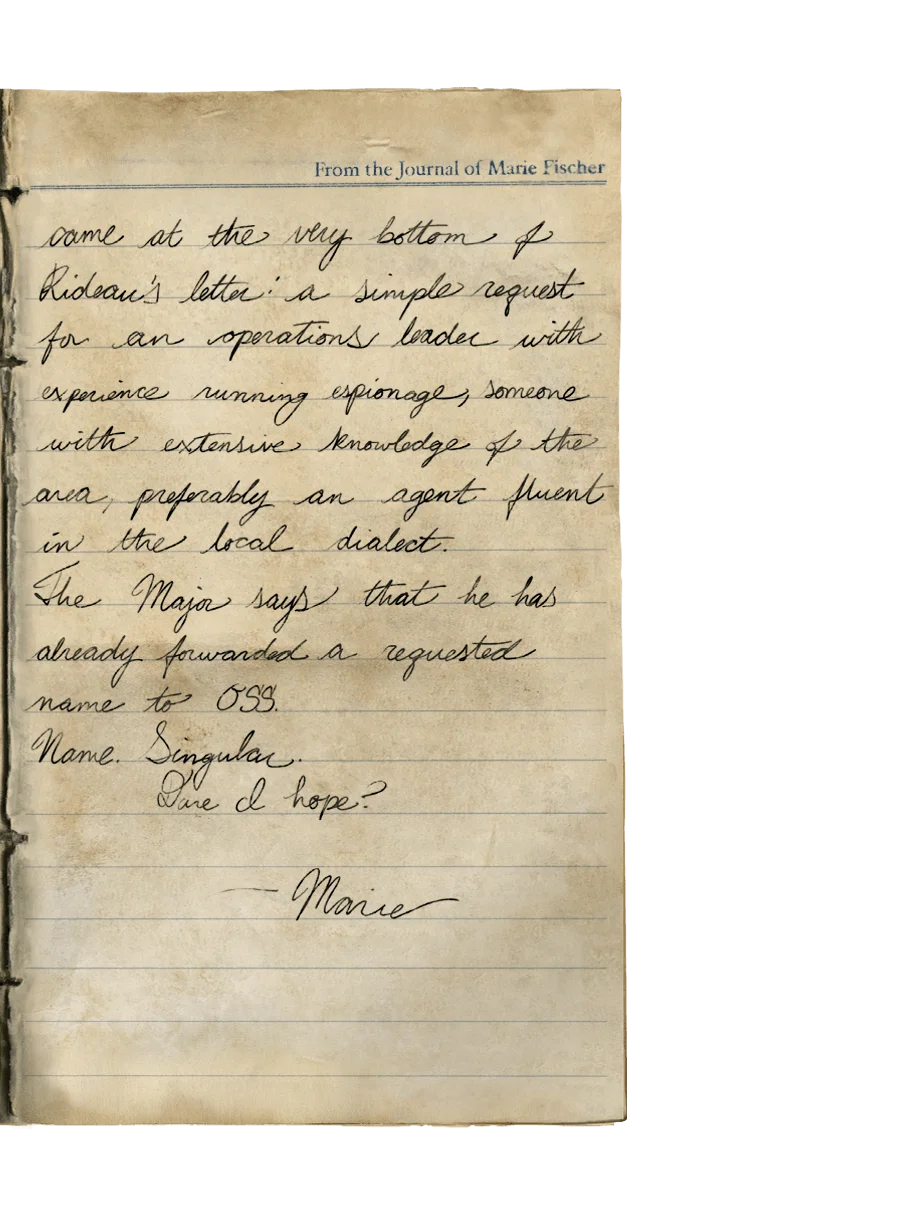 From the Journal of Marie Fischer
came at the very bottom of
Rideau's letter: a simple request
for an operations leader with
experience running espionage, someone
with extensive knowledge of the
area, preferably an agent fluent
in the local dialect.
The Major says that he has
already forwarded a requested
name to OSS.
Name. Singular.
Dare I hope?
— Marie